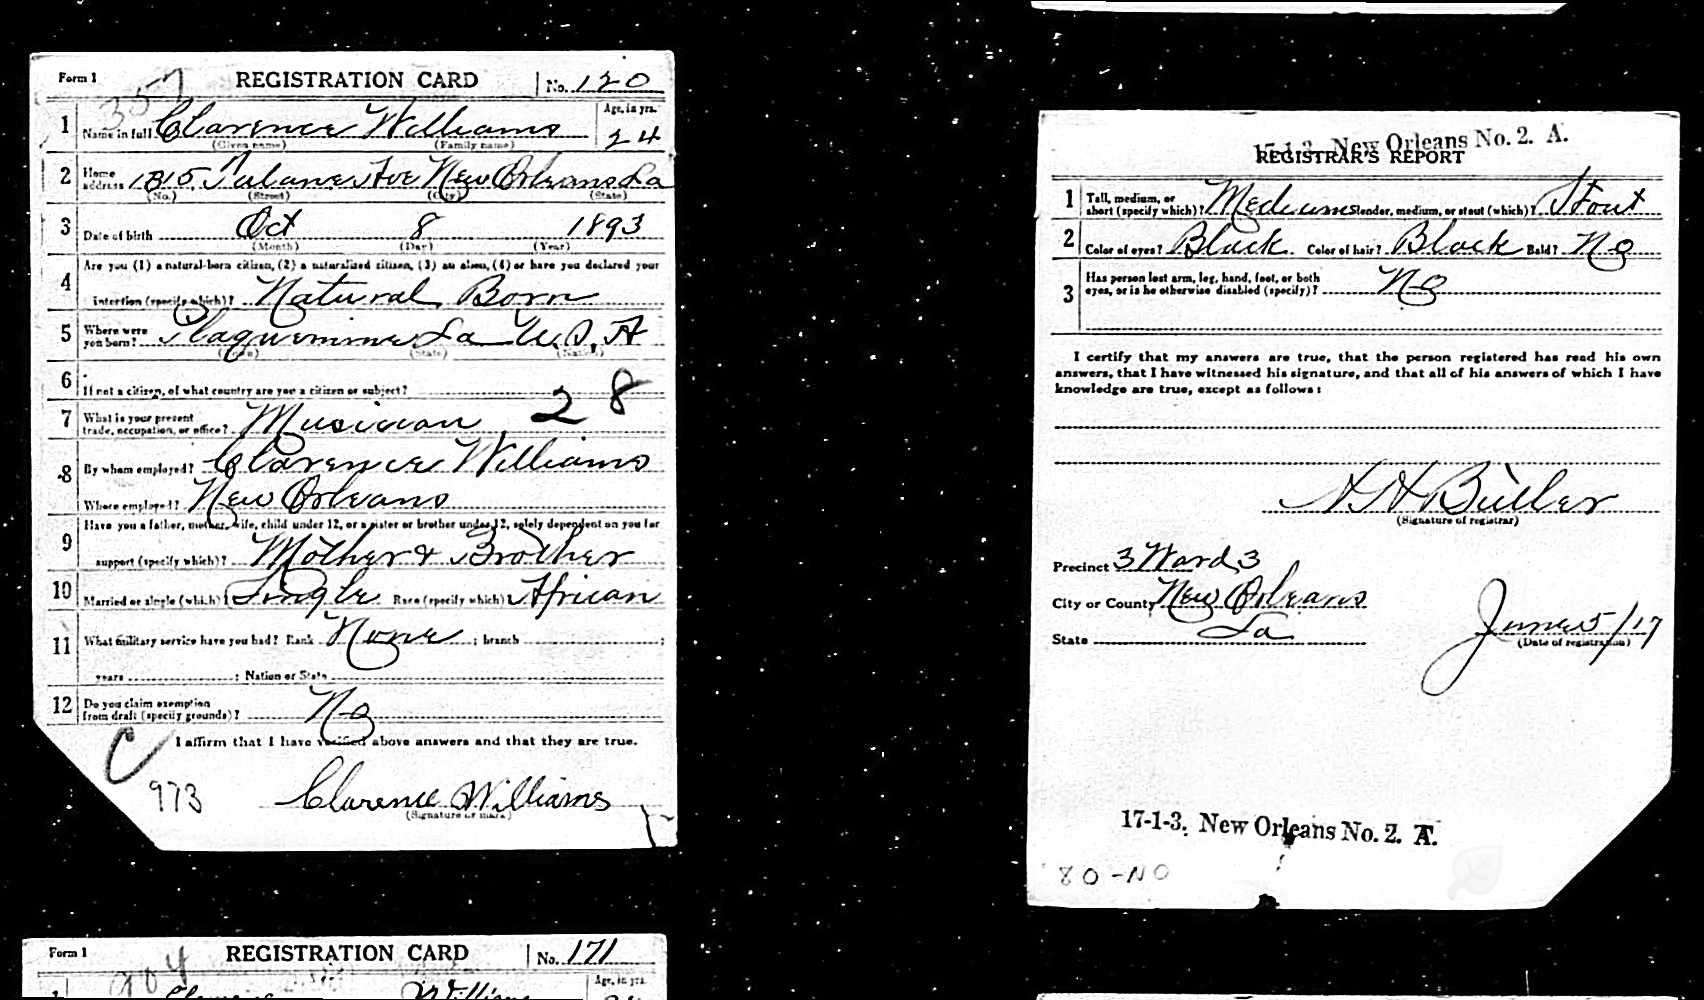 Form 1 357 REGISTRATION CARD No. 120
1 Name in full Clarence Williams Age, in yrs. 24
(Given name) (Family name)
2 Home address 1315 Tulane Ave New Orleans La
(No.) (Street) (City) (State)
3 Date of birth Oct 8 1893
(Month) (Day) (Year)
4 Are you (1) a natural-born citizen, (2) a naturalized citizen, (3) an alien, (4) or have you declared your
intention (specify which)? Natural Born
5 Where were you born? Plaquemine La U.S.A
(Town) (State) (Nation)
6 If not a citizen, of what country are you a citizen or subject?
7 What is your present trade, occupation, or office? Musician 28
8 By whom employed? Clarence Williams
Where employed? New Orleans
9 Have you a father, mother, wife, child under 12, or a sister or brother under 12, solely dependent on you for
support (specify which)? Mother & Brother
10 Married or single (which)? Single Race (specify which)? African
11 What military service have you had? Rank None ; branch ;
years ; Nation or State
12 Do you claim exemption from draft (specify grounds)? No
I affirm that I have verified above answers and that they are true.
C
973 Clarence Williams
(Signature or mark)
Form 1 REGISTRATION CARD No. 171
1 Williams Age, in yrs.
17-1-3. New Orleans No. 2. A.
REGISTRAR'S REPORT
1 Tall, medium, or short (specify which)? Medium Slender, medium, or stout (which)? Stout
2 Color of eyes? Black Color of hair? Black Bald? No
3 Has person lost arm, leg, hand, foot, or both
eyes, or is he otherwise disabled (specify)? No
I certify that my answers are true, that the person registered has read his own
answers, that I have witnessed his signature, and that all of his answers of which I have
knowledge are true, except as follows:
(Signature of registrar)
Precinct 3 Ward 3
City or County New Orleans
State La
June 5/17
(Date of registration)
17-1-3. New Orleans No. 2. A.
80-NO